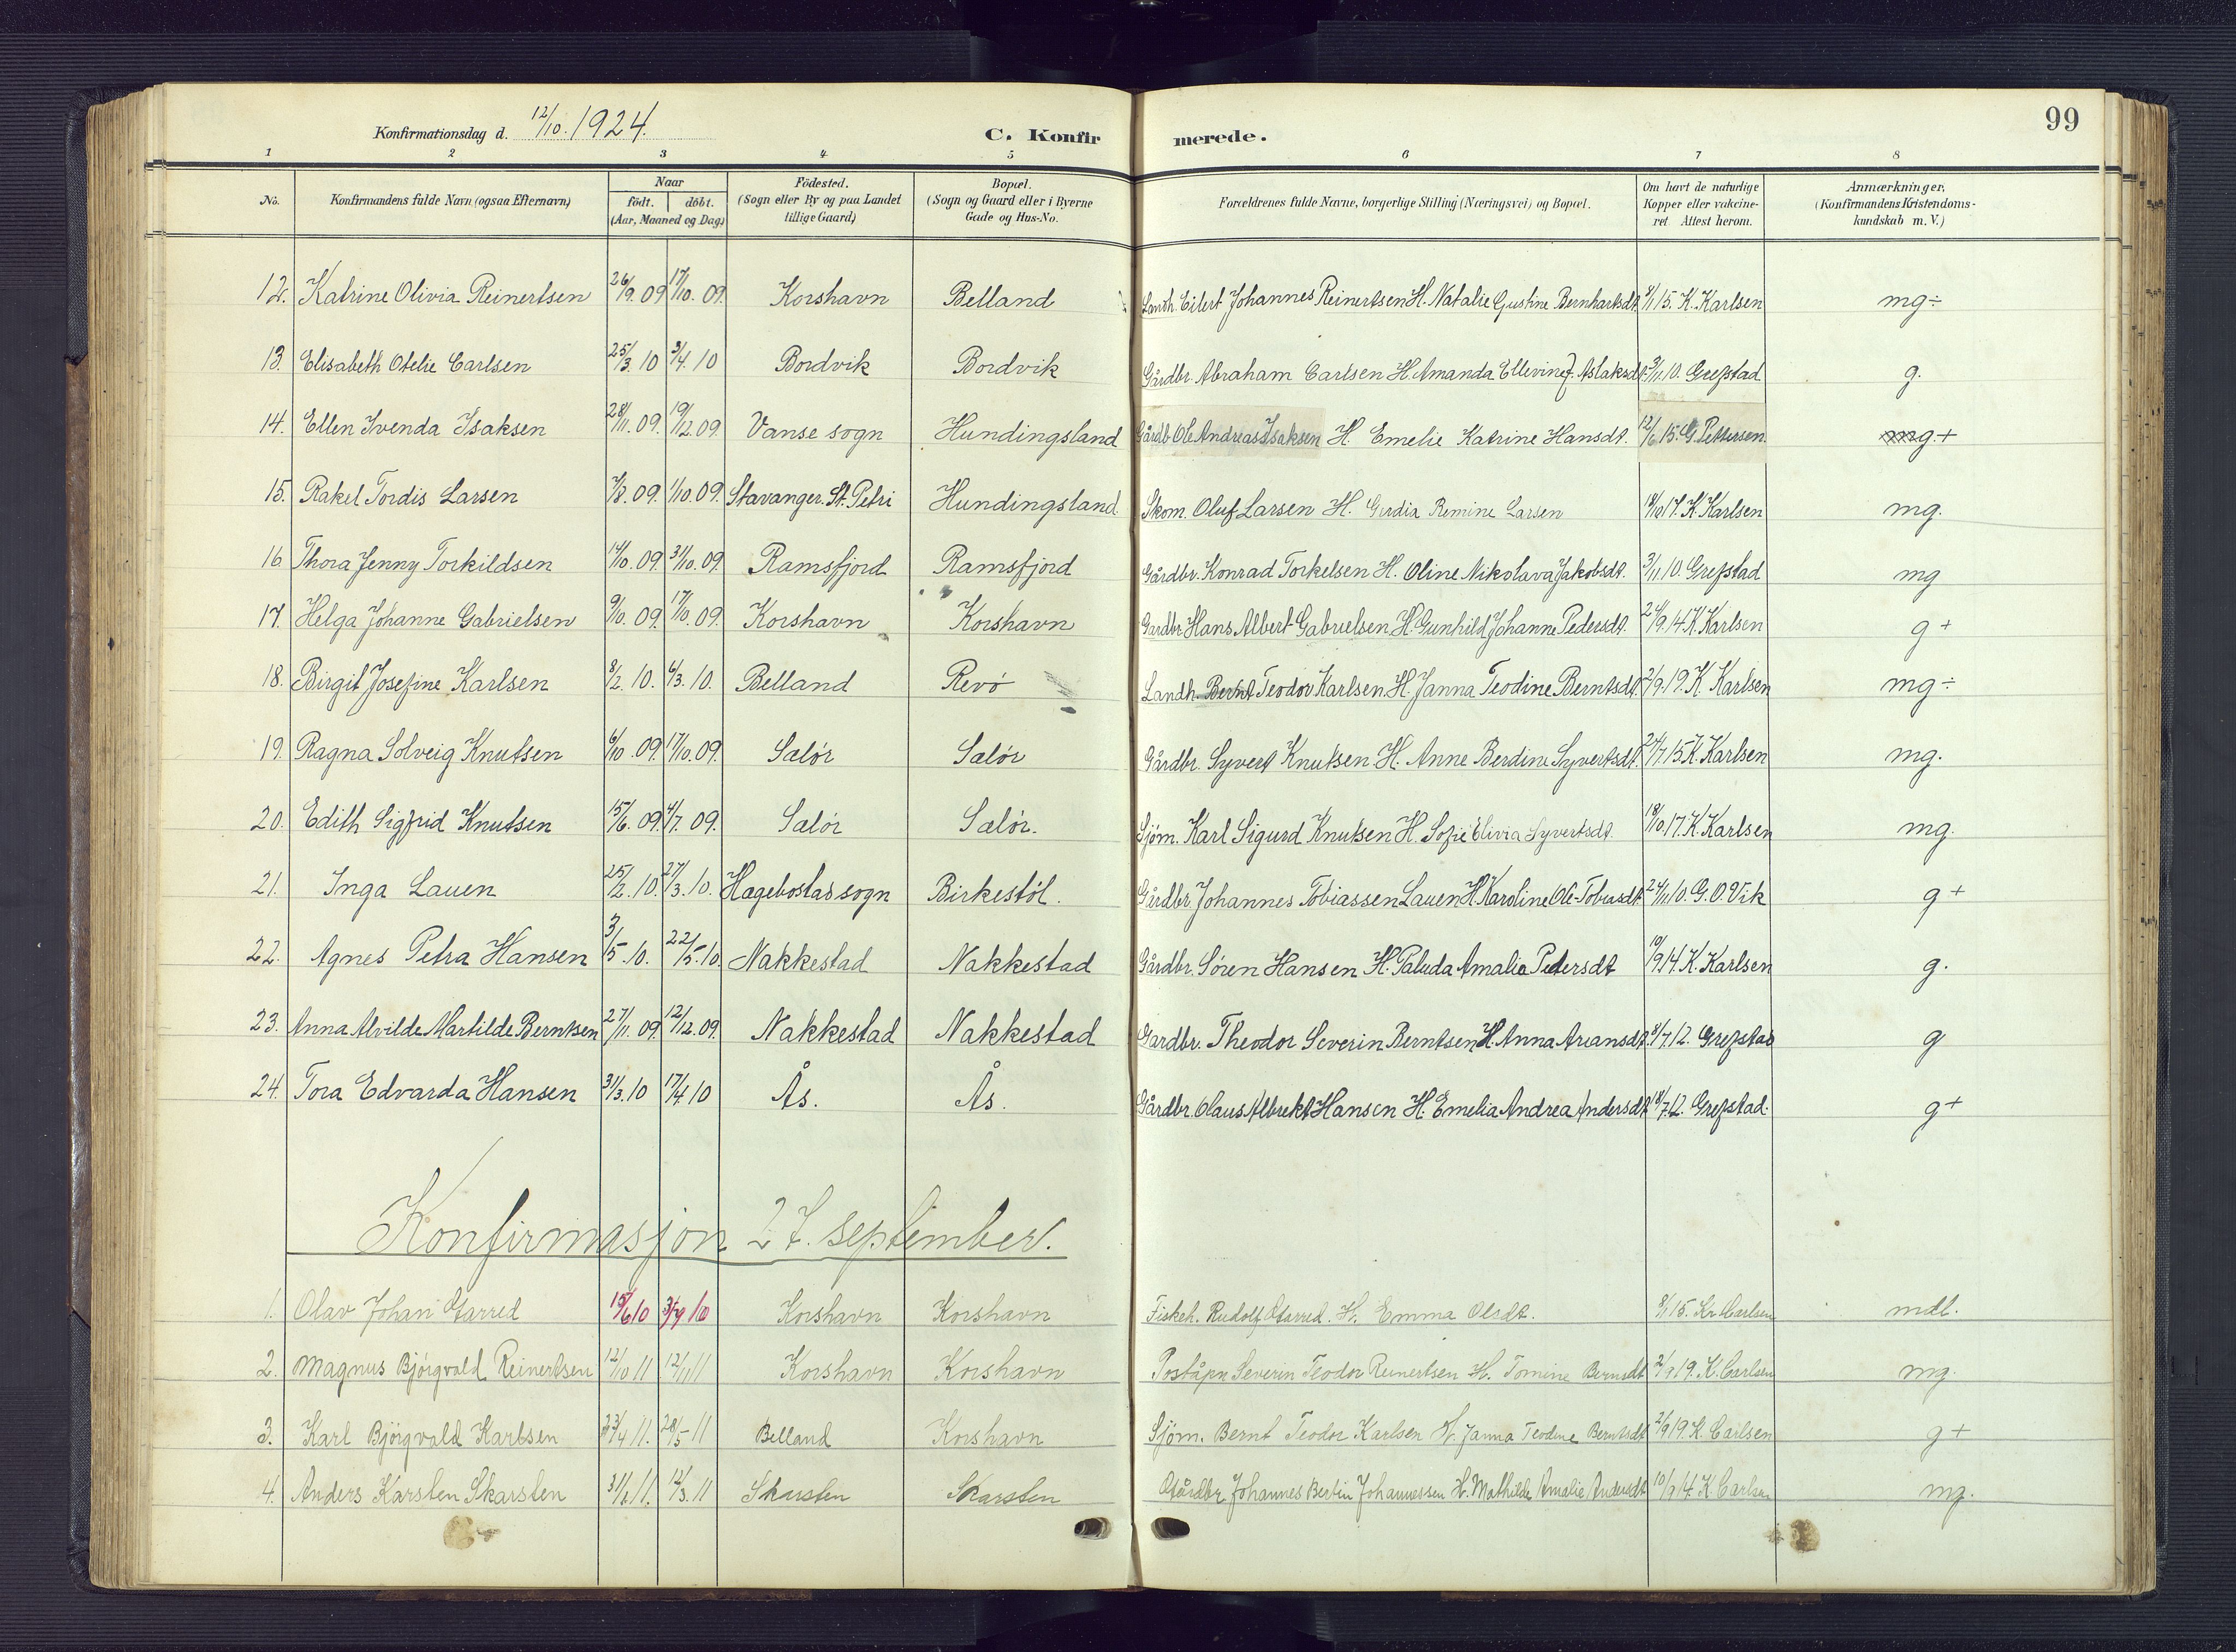 99
Konfirmationsdag d. 12/10. 1924.
C. Konfirmerede.
1 2 3 4 5 6 7 8
No. Konfirmandens fulde Navn (ogsaa Efternavn) Naar födt. döbt. (Aar, Maaned og Dag) Födested. (Sogn eller By og paa Landet tillige Gaard) Bopæl. (Sogn og Gaard eller i Byerne Gade og Hus-No. Forældrenes fulde Navne, borgerlige Stilling (Næringsvei) og Bopæl. Om havt de naturlige Kopper eller vakcineret Attest herom. Anmærkninger, (Konfirmandens Kristendomskundskab m. V.)
12. Katrine Olivia Reinertsen 26/9. 09 17/10. 09. Korshavn Belland Landh. Eilert Johannes Reinertsen H. Natalie Gustine Bernhartsdt. 8/1 15. K. Karlsen mg÷
13. Elisabeth Otelie Carlsen 25/3. 10 3/4. 10 Bordvik Bordvik Gårdbr. Abraham Carlsen H. Amanda Ellevine J. Aslaksdt. 3/11. 10. Grefstad g.
14. Ellen Svenda Isaksen 28/11. 09. 19/12. 09. Vanse sogn Hundingsland Gårdb. Ole Andreas Isaksen H. Emelie Katrine Hansdt. 12/6. 15. G. Pettersen. g.+
15. Rakel Tordis Larsen 7/8. 09. 1/10. 09. Stavanger. St. Petri Hundingsland Skom. Oluf Larsen H. Gerdia Remine Larsen 18/10 17. K. Karlsen mg.
16 Thora Jenny Torkildsen 14/10. 09. 31/10. 09. Ramsfjord Ramsfjord Gårdbr. Konrad Torkelsen H. Oline Nikolava Jakobsdt. 3/11. 10. Grefstad mg
17. Helga Johanne Gabrielsen 9/10. 09. 17/10. 09. Korshavn Korshavn Gardbr. Hans Albert Gabrielsen H. Gunhild Johanne Pedersdt. 24/9. 14. K. Karlsen g+
18. Birgit Josefine Karlsen 8/2. 10. 6/3. 10. Belland Revö Landh. Bernt Teodor Karlsen. H. Janna Teodine Berntsdt. 2/9. 19. K. Karlsen mg÷
19. Ragna Solveig Knutsen 6/10. 09. 17/10. 09. Salör Salör Gårdbr. Syvert Knutsen H. Anne Berdine Syvertsdt. 24/7 15 K. Karlsen mg.
20. Edith Sigfrid Knutsen 15/6. 09. 4/7. 09. Salör Salör. Sjöm. Karl Sigurd Knutsen H. Sofie Elivia Syvertsdt. 18/10. 17. K. Karlsen mg.
21. Inga Lauen 25/2. 10. 27/3. 10. Hægebostad sogn Birkestöl. Gårdbr. Johannes Tobiassen Lauen H. Karoline Ole-Tobiasdt. 24/11. 10. G. O. Vik g+
22. Agnes Petra Hansen 3/5. 10. 22/5. 10. Nakkestad Nakkestad Gårdbr. Sören Hansen H. Paluda Amalie Pedersdt 10/9 14. K. Karlsen g.
23. Anna Alvilde Martilde Berntsen 27/11. 09. 12/12. 09. Nakkestad Nakkestad Gardbr. Theodor Severin Berntsen H. Anna Areansdt. 8/7. 12. Grefstad g
24. Tora Edvarda Hansen 31/3. 10 17/4. 10 Ås. Ås. Gårdbr. Olaus Albrekt Hansen H. Emelia Andrea Andersdt. 18/7 12. Grefstad. g+
Konfirmasjon 27. september.
1. Olav Johan Garred 15/6 10 3/7 10 Korshavn Korshavn Fiskeh. Rudolf Garred. H. Emma Olsdt. 8/1 15. Kr. Carlsen mdl.
2. Magnus Bjørgvald Reinertsen 12/10 11 12/11 11 Korshavn Korshavn Poståpn Severin Teodor Reinertsen H. Tomine Berntsdt 2/9 19. K. Carlsen mg.
3. Karl Bjørgvald Karlsen 23/4 11. 28/5 11 Belland Korshavn Sjöm. Bernt Teodor Karlsen H. Janna Teodine Berntsdt 2/9 19. K. Carlsen g+
4. Anders Karsten Skarsten 31/1 11. 12/3. 11 Skarsten Skarsten Gårdbr Johannes Bertin Johannessen H. Mathilde Amalie Andersdt 10/9 14. K. Carlsen mg.